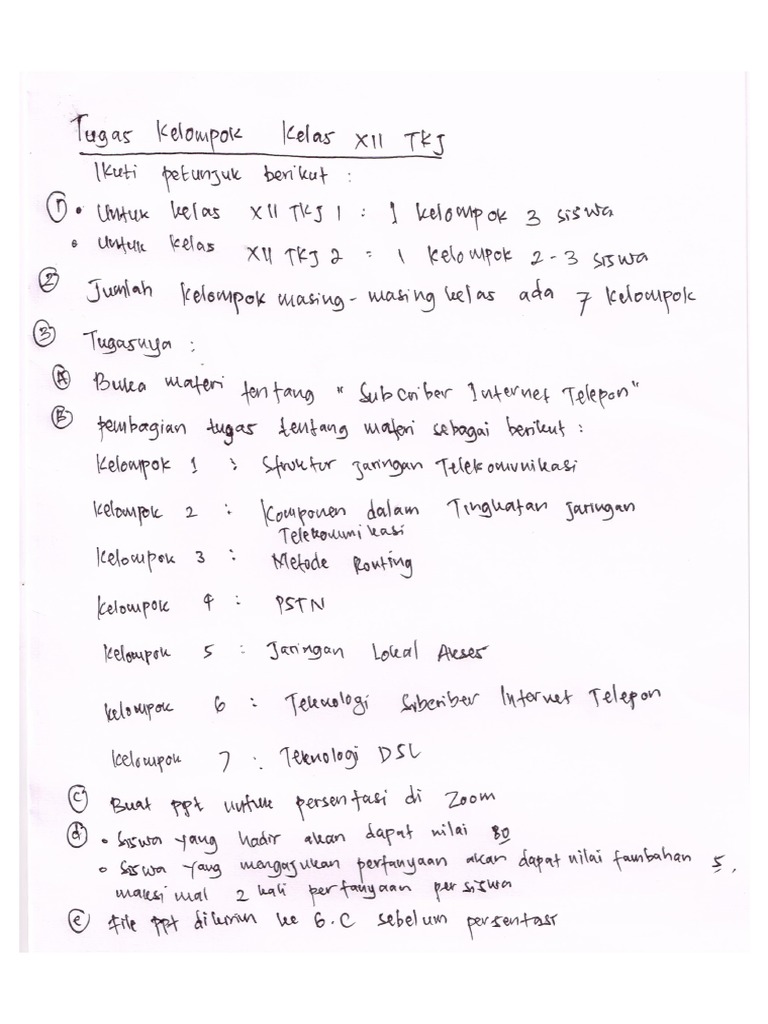 Tugas Kelompok Kelas XII TKJ
Ikuti petunjuk berikut :
① • Untuk kelas XII TKJ 1 : 1 kelompok 3 siswa
• Untuk kelas XII TKJ 2 = 1 kelompok 2 - 3 siswa
② Jumlah kelompok masing - masing kelas ada 7 kelompok
③ Tugasnya :
Ⓐ Buka materi tentang " Subcriber Internet Telepon"
Ⓑ pembagian tugas tentang materi sebagai berikut :
Kelompok 1 : Struktur jaringan Telekomunikasi
Kelompok 2 : Komponen dalam Tingkatan jaringan
Telekomunikasi
Kelompok 3 : Metode Routing
Kelompok 4 : PSTN
Kelompok 5 : Jaringan Lokal Akses
Kelompok 6 : Teknologi Subcriber Internet Telepon
Kelompok 7 : Teknologi DSL
ⓒ Buat ppt untuk persentasi di Zoom
ⓓ • Siswa yang hadir akan dapat nilai 80
• Siswa yang mengajukan pertanyaan akan dapat nilai tambahan 5,
maksimal 2 kali pertanyaan per siswa
ⓔ File ppt dikirim ke G.C sebelum persentasi